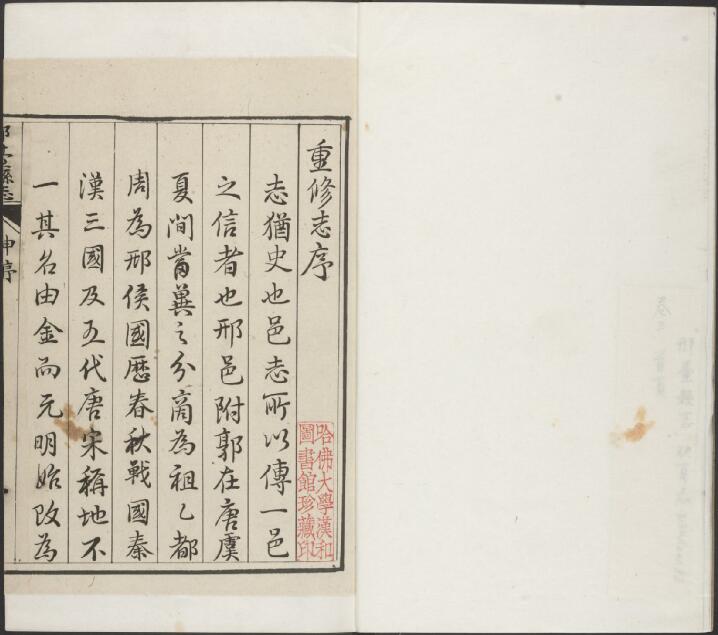 重修志序
志猶史也邑志所以傳一邑
之信者也邢邑附郭在唐虞
夏間嘗冀之分商為祖乙都
周為邢侯國歷春秋戰國秦
漢三國及五代唐宋稱地不
一其名由金而元明始改為
哈佛大學漢和
圖書館珍藏印
縣志
申序